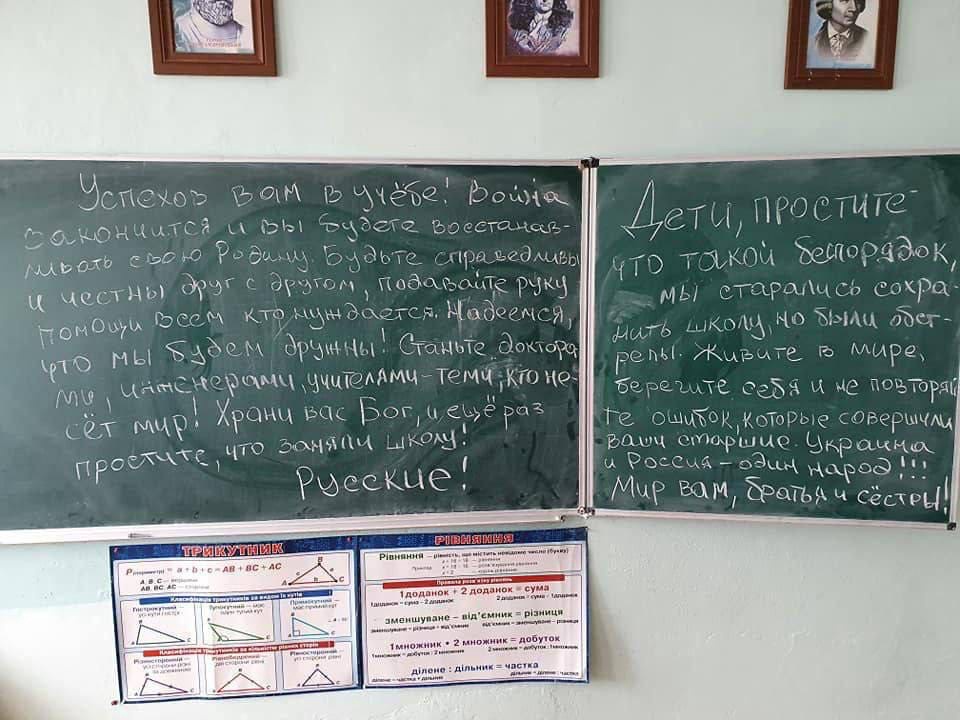 Дети, простите
что такой беспорядок,
мы старались сохра-
нить школу, но были обст-
релы. Живите в мире,
берегите себя и не повторяй-
те ошибок, которые совершили
ваши старшие. Украина
и Россия - один народ!!!
Мир вам, братья и сёстры!
Успехов вам в учёбе! Война
закончится и вы будете восстанав-
ливать свою Родину. Будьте справедливы
и честны друг с другом, подавайте руку
помощи всем кто нуждается. Надеемся,
что мы будем дружны! Станьте доктора-
ми, инженерами, учителями - теми, кто не-
сёт мир! Храни вас Бог, и ещё раз
простите, что заняли школу!
Русские!
ТРИКУТНИК
P (периметр) = a + b + c = AB + BC + AC
A, B, C — вершини
AB, BC, AC — сторони
Класифікація трикутників за видом їх кутів
Гострокутний —
усі кути гострі
Тупокутний — має
один тупий кут
Прямокутний —
має прямий кут
Класифікація трикутників за кількістю рівних сторін
Різносторонній —
усі сторони різні
за довжиною
Рівнобедрений —
дві сторони рівні
Рівносторонній —
усі сторони рівні
РІВНЯННЯ
Рівняння — рівність, що містить невідоме число (букву)
Правила розв'язку рівнянь
1доданок + 2 доданок = сума
1доданок = сума - 2 доданок
2 доданок = сума - 1доданок
зменшуване – від'ємник = різниця
зменшуване = різниця + від'ємник
від'ємник = зменшуване – різниця
1множник • 2 множник = добуток
1множник = добуток : 2 множник
2 множник = добуток : 1множник
ділене : дільник = частка
ділене = частка • дільник
дільник = ділене : частка